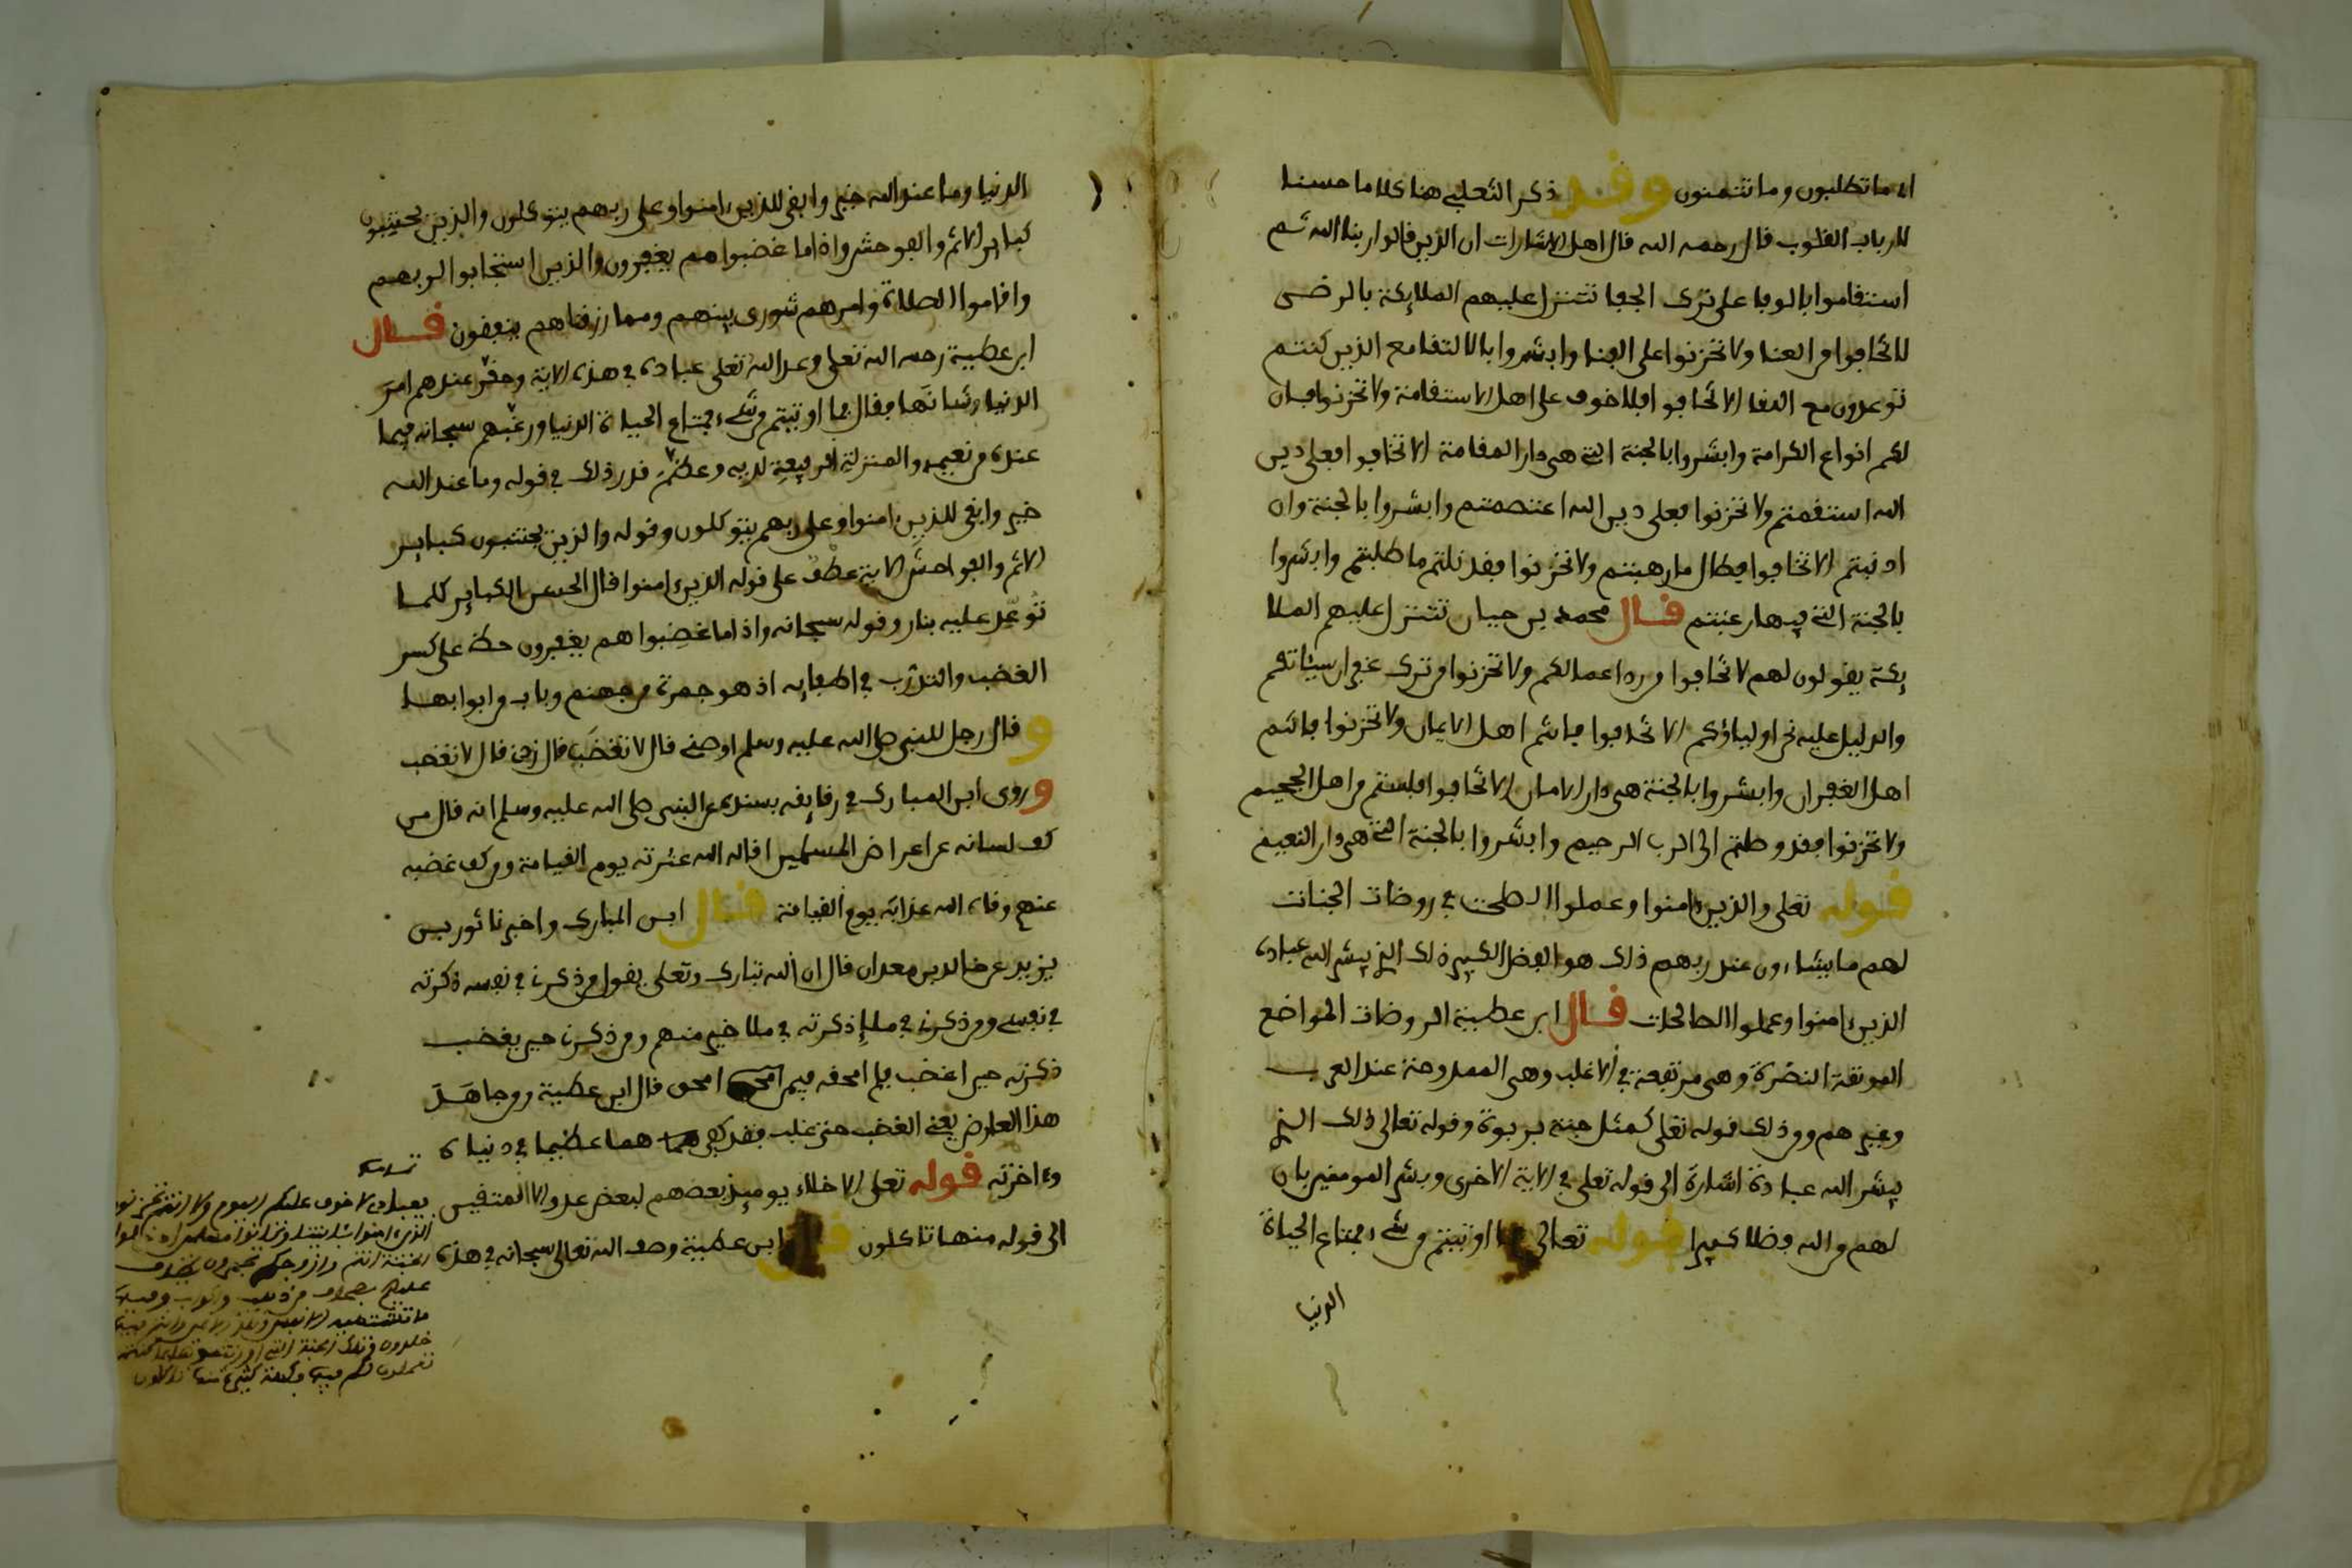 اي ما تطلبون وما تتمنون وقد ذكر الثعلبي هنا كلاما حسنا
لارباب القلوب قال رحمه الله قال اهل الاشارات ان الذين قالوا ربنا الله ثم
استقاموا بالوفا على ترك الجفا تتنزل عليهم الملايكة بالرضى
لا تخافوا من العنا ولا تحزنوا على الفنا وابشروا بالالتقا مع الذين كنتم
توعدون مع اللقا الا تخافوا فلا خوف على اهل الاستقامة ولا تحزنوا فان
لكم انواع الكرامة وابشروا بالجنة التي هي دار المقامة الا تخافوا فعلى دين
الله استقمتم ولا تحزنوا فعلى دين الله اعتصمتم وابشروا بالجنة وان
اذنبتم الا تخافوا فطال ما رهبتم ولا تحزنوا فقد نلتم ما طلبتم وابشروا
بالجنة التي فيها رغبتم قال محمد بن حيان تتنزل عليهم الملا
يكة يقولون لهم لا تخافوا من رد اعمالكم ولا تحزنوا من ترك غفران سيئاتكم
والدليل عليه نحن اولياؤكم الا تخافوا فانتم اهل الايمان ولا تحزنوا فانتم
اهل الغفران وابشروا بالجنة هي دار الامان الا تخافوا فلستم من اهل الجحيم
ولا تحزنوا فقد وصلتم الى الرب الرحيم وابشروا بالجنة التي هي دار النعيم
قوله تعلى والذين امنوا وعملوا الصلحت في روضات الجنات
لهم ما يشاءون عند ربهم ذلك هو الفضل الكبير ذلك الذي يبشر الله عباده
الذين امنوا وعملوا الصالحات قال ابن عطية الروضات المواضع
المونقة النضرة وهي مرتفعة في الاغلب وهي الممدوحة عند العرب
وغيرهم ومن ذلك قوله تعلى كمثل جنة بربوة وقوله تعالى ذلك الذي
يبشر الله عباده اشارة الى قوله تعلى في الاية الاخرى وبشر المومنين بان
لهم من الله فضلا كبيرا قوله تعالى فما اوتيتم من شيء فمتاع الحياة
الدنيا
الدنيا وما عند الله خير وابقى للذين امنوا وعلى ربهم يتوكلون والذين يجتنبون
كباير الاثم والفوحش واذا ما غضبوا هم يغفرون والذين استجابوا لربهم
واقاموا الصلاة وامرهم شورى بينهم ومما رزقناهم ينفقون قال
ابن عطية رحمه الله تعلى وعد الله تعلى عباده في هذه الاية وحقر عندهم امر
الدنيا وشانها بقال فما اوتيتم من شيء فمتاع الحياة الدنيا ورغبهم سبحانه فيما
عنده من نعيمه والمنزلة الرفيعة لديه وعظم قدر ذلك في قوله وما عند الله
خير وابقى للذين امنوا وعلى ربهم يتوكلون وقوله والذين يجتنبون كباير
الاثم والفواحش الاية عطف على قوله الذين امنوا قال الحسن الكباير كلما
توعد عليه بنار وقوله سبحانه واذا ما غضبوا هم يغفرون حظ على كسر
الغضب والتدرب في اطفايه اذ هو جمرة من جهنم وباب من ابوابها
وقال رجل للنبي صلى الله عليه وسلم اوصني قال لا تغضب قال زدني قال لا تغضب
وروى ابن المبارك في رقايقه بسنده عن النبي صلى الله عليه وسلم انه قال من
كف لسانه عن اعراض المسلمين اقاله الله عثرته يوم القيامة ومن كف غضبه
عنهم وقاه الله عذابه يوم القيامة قال ابن المبارك واخبرنا ثور بن
يزيد عن خالد بن معدان قال ان الله تبارك وتعلى يقول من ذكرني في نفسه ذكرته
في نفسي ومن ذكرني في ملإ ذكرته في ملا خير منهم ومن ذكرني حين يغضب
ذكرته حين اغضب فلم امحقه فيمن امحق قال ابن عطية ومن جاهد
هذا العارض يعني الغضب حتى غلب فقد كفي هما عظيما في دنياه
وءاخرته قوله تعلى الاخلاء يوميذ بعضهم لبعض عدو الا المتقين
الى قوله منها تاكلون قال ابن عطية وصف الله تعالى سبحانه في هذه
يعباد لا خوف عليكم اليوم ولا انتم تحزنون
الذين امنوا بئايتنا وكانوا مسلمين ادخلوا
الجنة انتم وازوجكم تحبرون يطاف
عليهم بصحاف من ذهب واكواب وفيها
ما تشتهيه الانفس وتلذ الاعين وانتم فيها
خلدون وتلك الجنة التي اورثتموها بما كنتم
تعملون لكم فيها فكهة كثيرة منها تاكلون